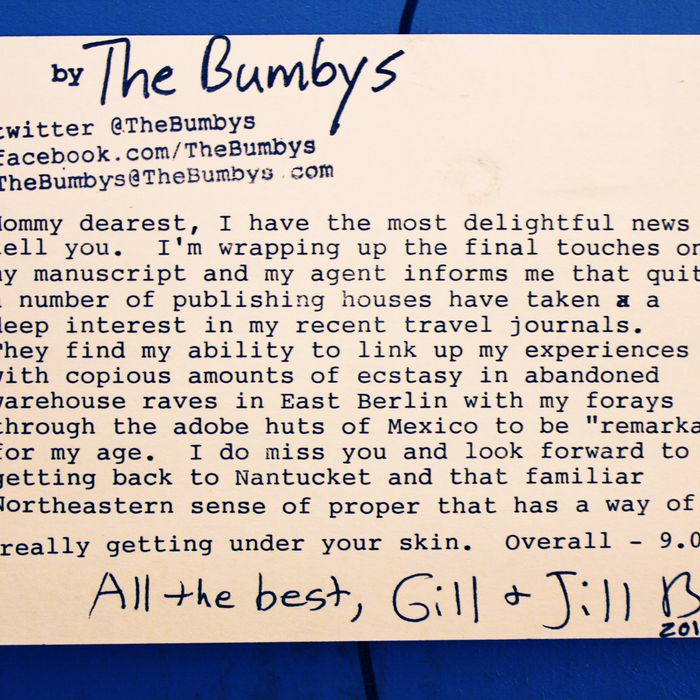 by The Bumbys
twitter @TheBumbys
facebook.com/TheBumbys
TheBumbys@TheBumbys.com
Mommy dearest, I have the most delightful news
tell you. I'm wrapping up the final touches on
my manuscript and my agent informs me that quit
a number of publishing houses have taken a a
deep interest in my recent travel journals.
They find my ability to link up my experiences
with copious amounts of ecstasy in abandoned
warehouse raves in East Berlin with my forays
through the adobe huts of Mexico to be "remarka
for my age. I do miss you and look forward to
getting back to Nantucket and that familiar
Northeastern sense of proper that has a way of
really getting under your skin. Overall - 9.0
All the best, Gill + Jill B
201